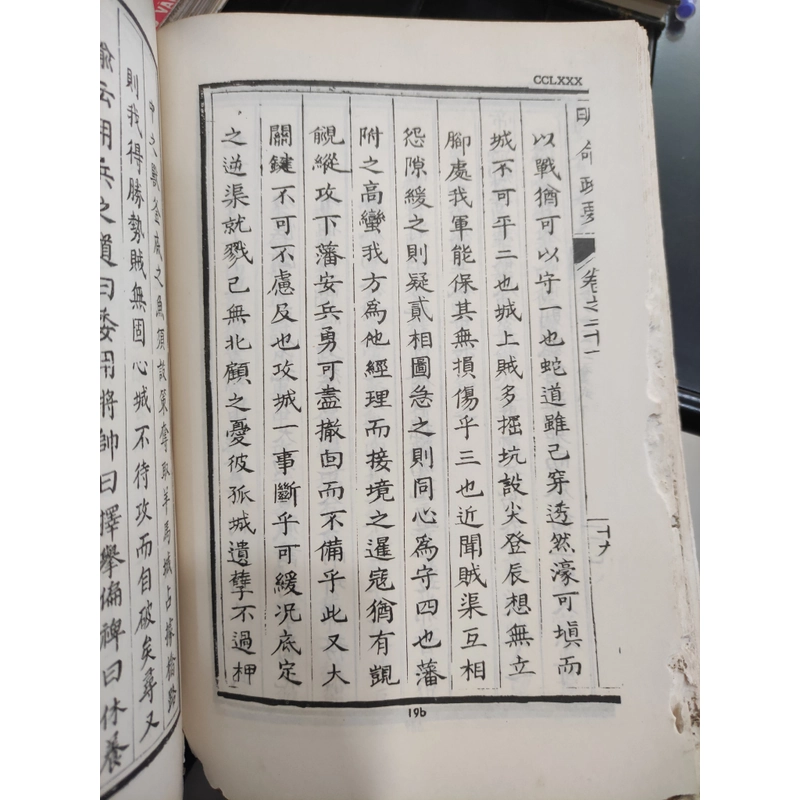 CCLXXX
明命政要 卷之二十一 十九
以戰猶可以守一也蛇道雖已穿透然濠可塡而
城不可平二也城上賊多掘坑設尖登辰想無立
腳處我軍能保其無損傷乎三也近聞賊渠互相
怨隙緩之則疑貳相圖急之則同心為守四也藩
附之高蠻我方為他經理而接境之暹寇猶有覬
覦縱攻下藩安兵勇可盡撤囬而不備乎此又大
關鍵不可不慮及也攻城一事斷乎可緩况底定
之逆渠就戮已無北顧之憂彼孤城遺孽不過柙
19b
中之獸釜底之魚須設策奪取羊馬城占據
則我得勝勢賊無固心城不待攻而自破矣尋又
諭云用兵之道曰委用將帥曰擇擧偏裨曰休養